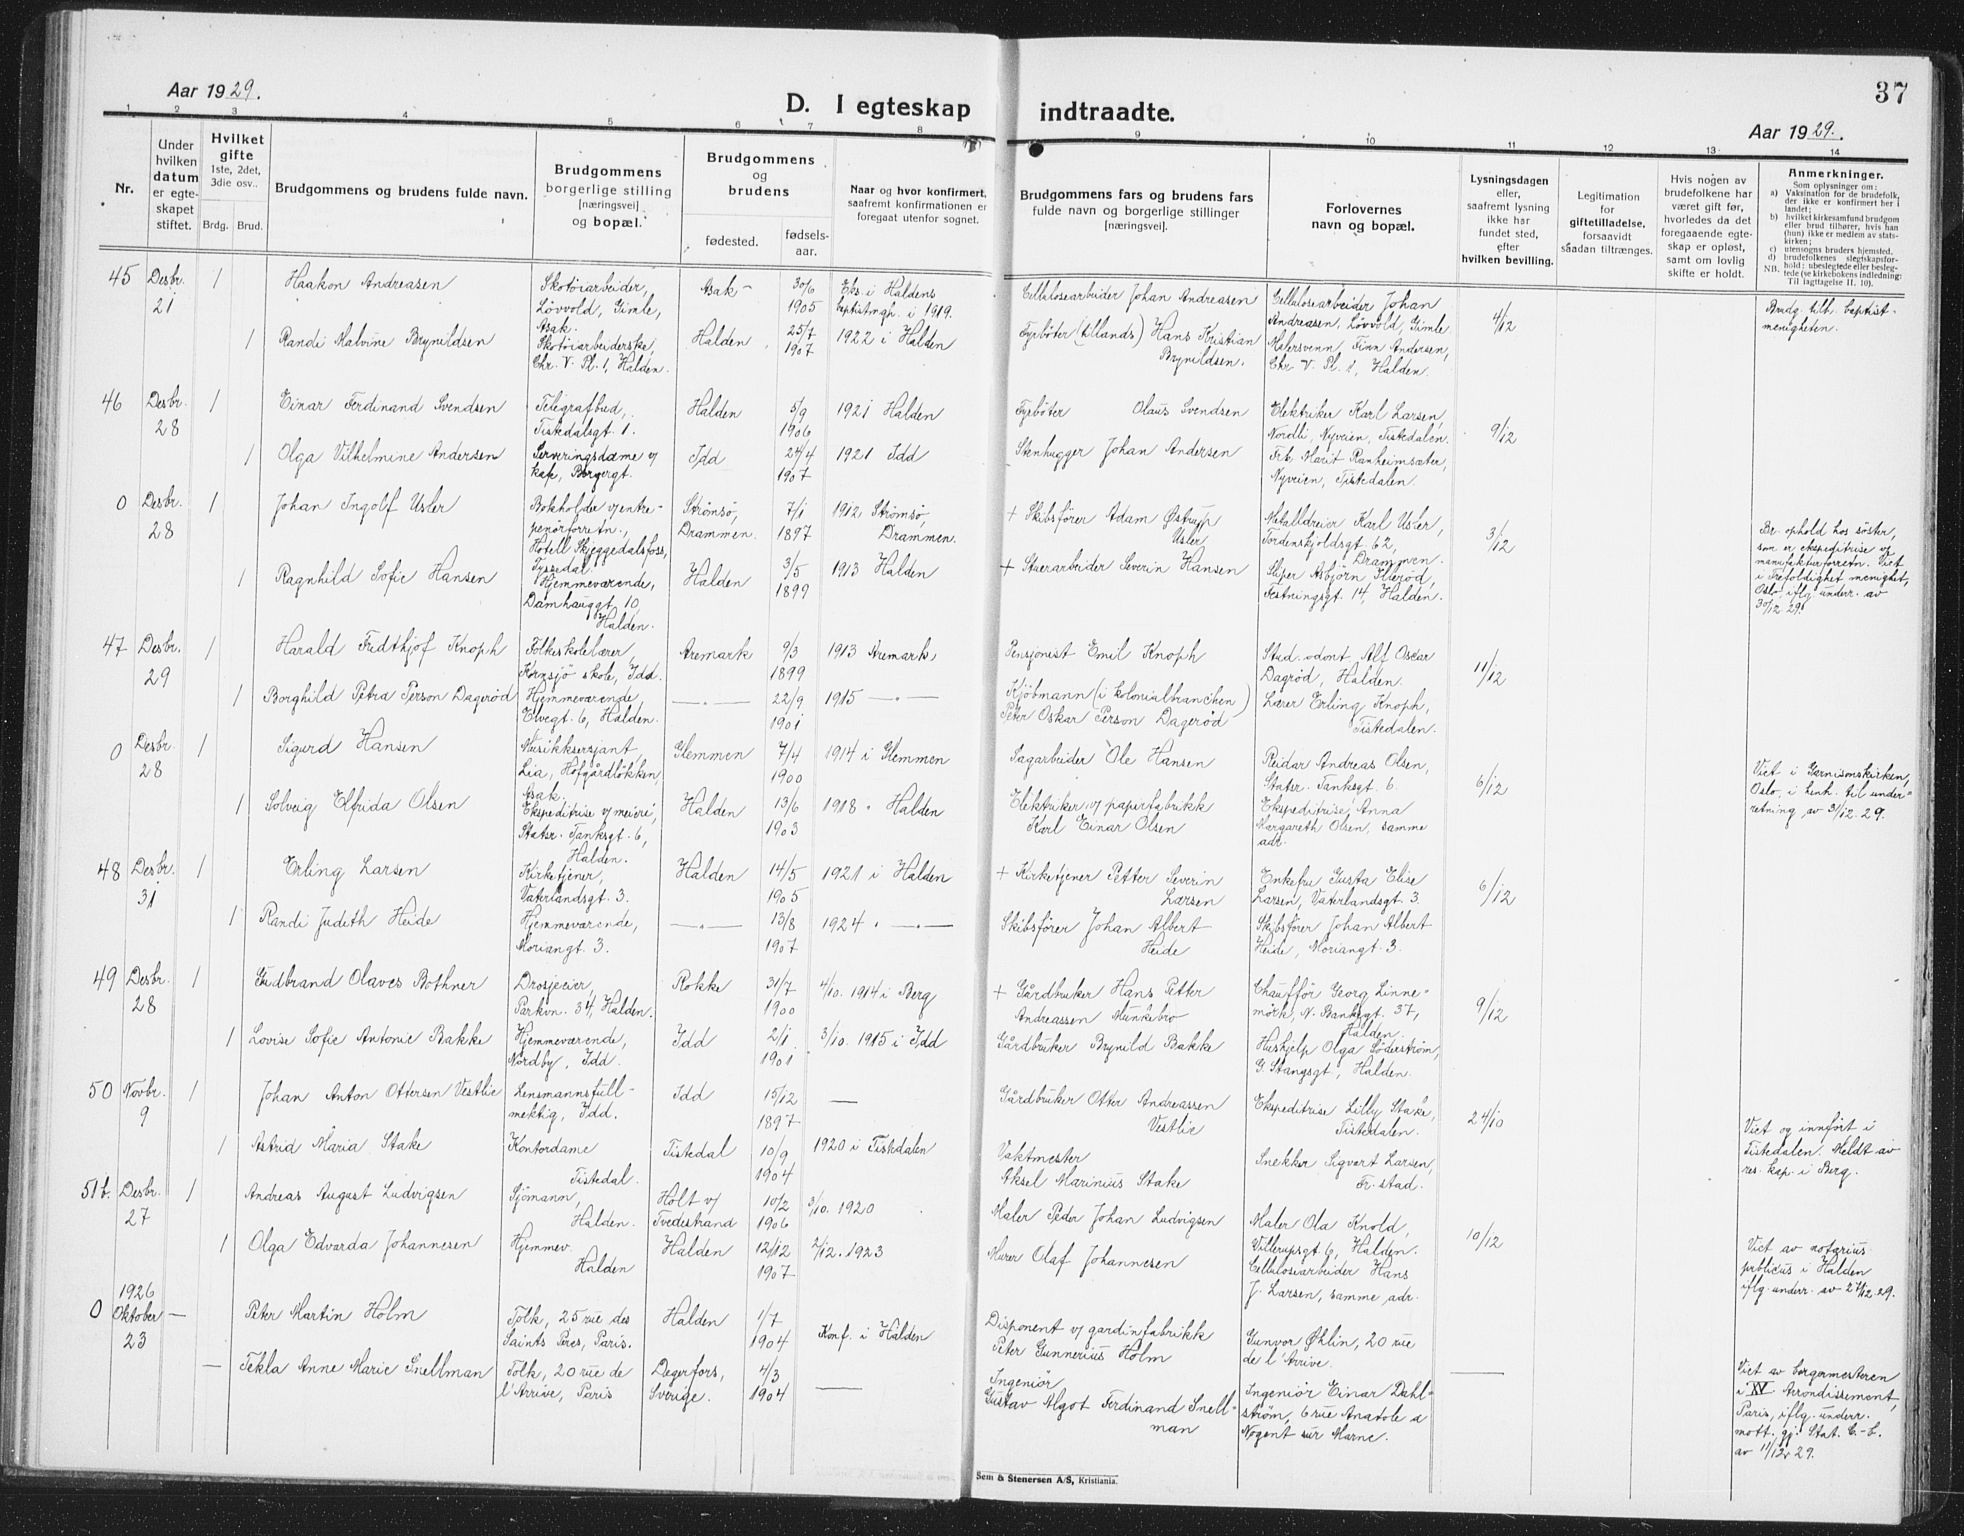 Aar 1929.
D. I egteskap indtraadte.
37
Aar 1929.
1 2 3 4 5 6 7 8 9 10 11 12 13 14
Nr.
Under hvilken datum er egteskapet stiftet.
Hvilket gifte
1ste, 2det, 3die osv..
Brdg. Brud.
Brudgommens og brudens fulde navn.
Brudgommens borgerlige stilling [næringsvei] og bopæl.
Brudgommens og brudens
fødested.
fødsels-aar.
Naar og hvor konfirmert, saafremt konfirmationen er foregaat utenfor sognet.
Brudgommens fars og brudens fars fulde navn og borgerlige stillinger [næringsvei].
Forlovernes navn og bopæl.
Lysningsdagen eller, saafremt lysning ikke har fundet sted, efter hvilken bevilling.
Legitimation for giftetilladelse, forsaavidt saadan tiltrænges.
Hvis nogen av brudefolkene har været gift før, hvorledes da det foregaaende egteskap er opløst, samt om lovlig skifte er holdt.
Anmerkninger.
Som oplysninger om:
a) Vaksination for de brudefolk, der ikke er konfirmert her i landet;
b) hvilket kirkesamfund brudgom eller brud tilhører, hvis han (hun) ikke er medlem av statskirken;
c) utensogns bruders hjemsted.
d) brudefolkenes slegtskapsforhold: ubeslegtede eller beslegtede (se kirkebokens indledning:
NB. Til iagttagelse II. 10).
45 Desbr. 21 1 Haakon Andreasen Skotøiarbeider, Løvvold, Gimle, Asak. Asak 30/6 1905 Eks. i Haldens baptistmgh. i 1919. Cellulosearbeider Johan Andreasen Cellulosearbeider Johan Andreasen, Løvvold, Gimle 4/12 Brudg. tilh. baptistmenigheten.
1 Randi Malvine Brynildsen Skotøiarbeiderske, Chr. V. Pl. 1, Halden. Halden 25/7 1907 1922 i Halden Fyrbøter (tillands) Hans Kristian Brynildsen. Malersvenn Finn Andersen, Chr. V. Pl. 1, Halden.
46 Desbr. 28 1 Einar Ferdinand Svendsen Telegrafbud, Tistedalsgt. 1. Halden 5/9 1906 1921 Halden Fyrbøter Olaus Svendsen Elektriker Karl Larsen, Nordli, Nyveien, Tistedalen. 9/12
1 Olga Vilhelmine Andersen Serveringsdame v/ kafe, Borgergt. Idd 24/4 1907 1921 Idd Stenhugger Johan Andersen Frk. Marit Ranheimsæter, Nyveien, Tistedalen.
0 Desbr. 28 1 Johan Ingolf Usler Bokholder v/entrepenørforretn., Hotell Skjeggedalsfoss, Tyssedal Strømsø, Drammen. 7/1 1897 1912 Strømsø, Drammen. + Skibsfører Adam Østrup Usler Metalldreier Karl Usler, Tordenskjoldsgt 62, Drammen. 3/12 Br. ophold hos søster, som er ekspeditrise v/ manufakturforretn. Viet i Trefoldighet menighet, Oslo, iflg. underr. av 30/12 29.
1 Ragnhild Sofie Hansen Hjemmeværende, Damhauggt. 10, Halden. Halden 3/5 1899 1913 Halden + Stuerarbeider Severin Hansen Sliper Asbjörn Klerød, Festningsgt. 14, Halden.
47 Desbr. 29 1 Harald Fridthjof Knoph Folkeskolelærer, Kornsjø skole, Idd. Aremark 9/3 1899 1913 Aremark Pensjonist Emil Knoph Stud. odont. Alf Oscar Dagrød, Halden. 11/12
1 Borghild Petra Person Dagerød Hjemmeværende, Elvegt. 6, Halden. —„— 22/9 1901 1915 —„— Kjøbmann (i kolonialbranchen) Peter Oskar Person Dagerød Lærer Erling Knoph, Tistedalen.
0 Desbr. 28 1 Sigurd Hansen Musikksersjant, Lia, Hofgårdløkken, Asak. Glemmen 7/4 1900 1914 i Glemmen Sagarbeider Ole Hansen Reidar Andreas Olsen, Stater. Tanksgt. 6. 6/12 Viet i Garnisonskirken, Oslo, i henh. til underretning av 31/12 29.
1 Solveig Elfrida Olsen Ekspeditrise v/ meieri, Statsr. Tanksgt. 6, Halden. Halden 13/6 1903 1918 „ Halden Elektriker v/ papirfabrikk Karl Einar Olsen Ekspeditrise Anna Margareth Olsen, samme adr.
48 Desbr. 31 1 Erling Larsen Kirketjener, Vaterlandsgt. 3. Halden 14/5 1905 1921 i Halden + Kirketjener Petter Severin Larsen Enkefru Gusta Elise Larsen, Vaterlandsgt 3. 6/12
1 Randi Judith Heide Hjemmeværende, Moriangt. 3. —„— 13/8 1907 1924 „ —„— Skibsfører Johan Albert Heide Skibsfører Johan Albert Heide, Moriangt 3.
49 Desbr. 28 1 Gudbrand Olaves Bothner Drosjeeier, Parkvn. 34, Halden. Rokke 31/7 1900 4/10. 1914 i Berg + Gårdbruker Hans Petter Andreassen Munkebro Chauffør Georg Linnemörk, N. Banksgt. 37, Halden. 9/12
1 Lovise Sofie Antonie Bakke Hjemmeværende, Nordby, Idd. Idd 2/1 1901 3/10. 1915 i Idd Gårdbruker Brynild Bakke Hushjelp Olga Söderström, G. Stangsgt, Halden.
50 Novbr. 9 1 Johan Anton Ottersen Vestlie Lensmannsfullmektig, Idd. Idd 15/12 1897 — Gårdbruker Otter Andreassen Vestlie Ekspeditrise Lilly Stake, Tistedalen. 24/10 Viet og innført i Tistedalen. Meldt av res. kap. i Berg.
1 Astrid Maria Stake Kontordame Tistedal. Tistedal 10/9 1904 1920 i Tistedalen Vaktmester Aksel Marinius Stake Snekker Sigvart Larsen, Fr.stad.
51 b. Desbr. 27 1 Andreas August Ludvigsen Sjömann, Halden. Holt v/ Tvedestrand 10/2 1906 3/10. 1920 Maler Peder Johan Ludvigsen Maler Ola Knold, Villerupsgt 6, Halden. 10/12 Viet av notarius publicus i Halden iflg. underr. av 27/12 29.
1 Olga Edvarda Johannesen Hjemmev. Halden Halden 12/12 1907 2/12. 1923 Murer Olaf Johannesen Cellulosearbeider Hans J. Larsen, samme adr.
0 1926 Oktober 23 — Peter Martin Holm Tolk, 25 rue des Saints Peres, Paris. Halden 1/7 1904 Konf. i Halden Disponent v/ gardinfabrikk Peter Gunnerius Holm Gunvor Øhlin, 20 rue de l'Arrive. — Viet av borgermesteren i XV Arrondissement, Paris, iflg. underr. mott. gj. Stat. C.-b. av 11/12 29.
— Tekla Anne Marie Snellman Tolk, 20 rue de l'Arrive, Paris Degerfors, Sverige. 4/3 1904 — Ingeniør Gustav Algot Ferdinand Snellman Ingeniør Einar Dahlström, 6 rue Anatole a Nogent sur Marne.
Sem & Stenersen A/S, Kristiania.